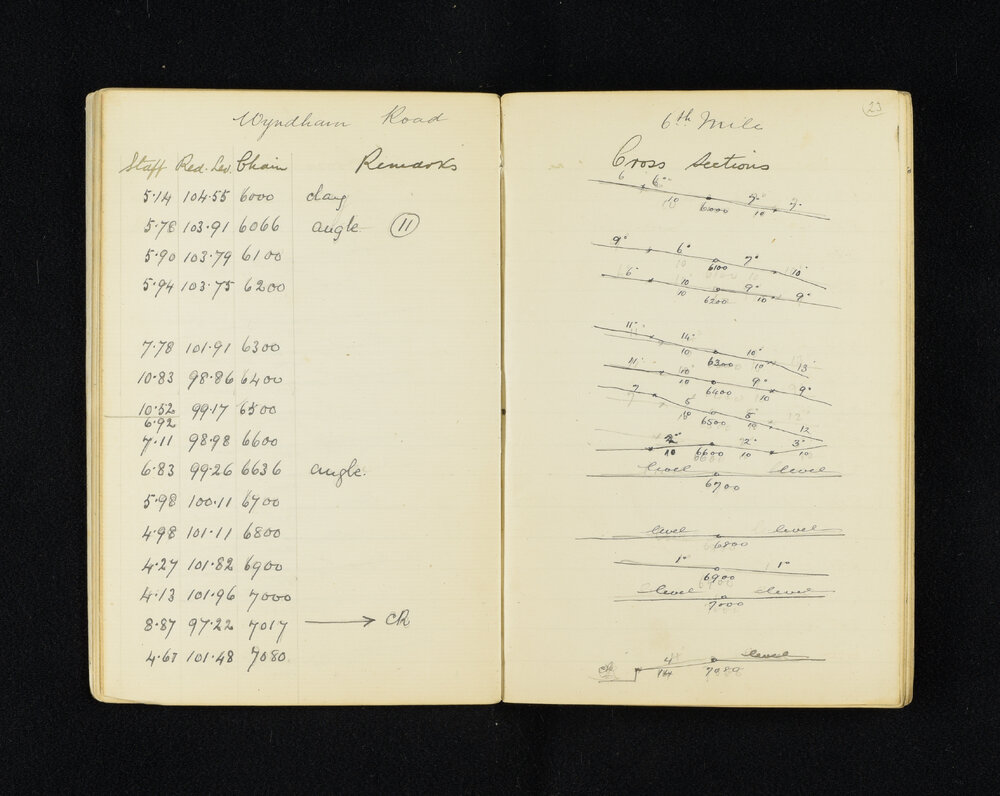 Wyndham Road
Staff Red. Lev. Chain Remarks
5·14 104·55 6000
5·78 103·91 6066 angle 11
5·90 103·79 6100
5·94 103·75 6200
7·78 101·91 6300
10·83 98·86 6400
10·52 99·17 6500
6·92
7·11 98·98 6600
6·83 99·26 6636 angle.
5·98 100·11 6700
4·98 101·11 6800
4·27 101·82 6900
4·13 101·96 7000
8·87 97·22 7017 → ck
4·67 101·48 7080
23
6th Mile
Cross Sections
6 6° 7° 7°
10 6000 10
9° 6° 7° 10°
10 6100 10
6° 10 9° 9°
10 6200 10
11° 14° 10° 13°
10 6300 10
11° 10° 9° 9°
10 6400 10
7 8 8° 12
10 6500 10
2° 2° 3°
10 6600 10 10
level level
6700
level level
6800
1° 1°
6900
level level
7000
ck 4 level
14 7080